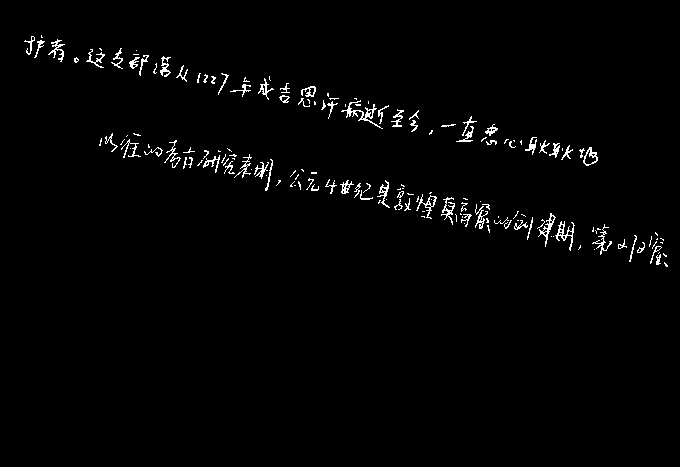 护者。这支部落从1227年成吉思汗病逝至今，一直忠心耿耿地
以往的考古研究表明，公元4世纪是敦煌莫高窟的创建期，第272窟、